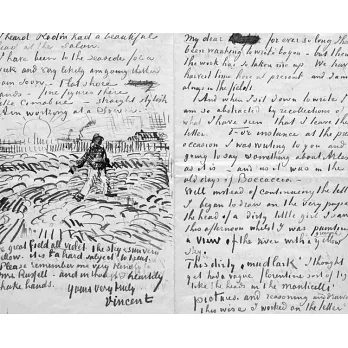 heard Rodin had a beautiful
head at the salon.
I have been to the seaside for a
week and very likely am going thither
again soon. Flat shore
sands - fine figures there
like Cimabue - straight stylish
Am working at a Sower.
the great field all violet the sky & sun very
yellow. it is a hard subject to treat.
Please remember me very kindly to
mrs Russell - and in thought I heartily
shake hands.
Yours very truly
Vincent
My dear for ever so long I have
been wanting to write to you - but then
the work has so taken me up. We have
harvest time here at present and I am
always in the fields.
And when I sit down to write I
am so abstracted by recollections of
what I have seen that I leave the
letter. For instance at the present
occasion I was writing to you and
going to say something about Arles
as it is - and as it was in the
old days of Boccaccio.
Well instead of continuing the letter
I began to draw on the very paper
the head of a dirty little girl I saw
this afternoon whilst I was painting
a view of the river with a yellow
sky.
This dirty "mudlark" I thought
yet had a vague florentine sort of figure
like the heads in the monticelli
pictures. and reasoning and drawing
this wise I worked on the letter